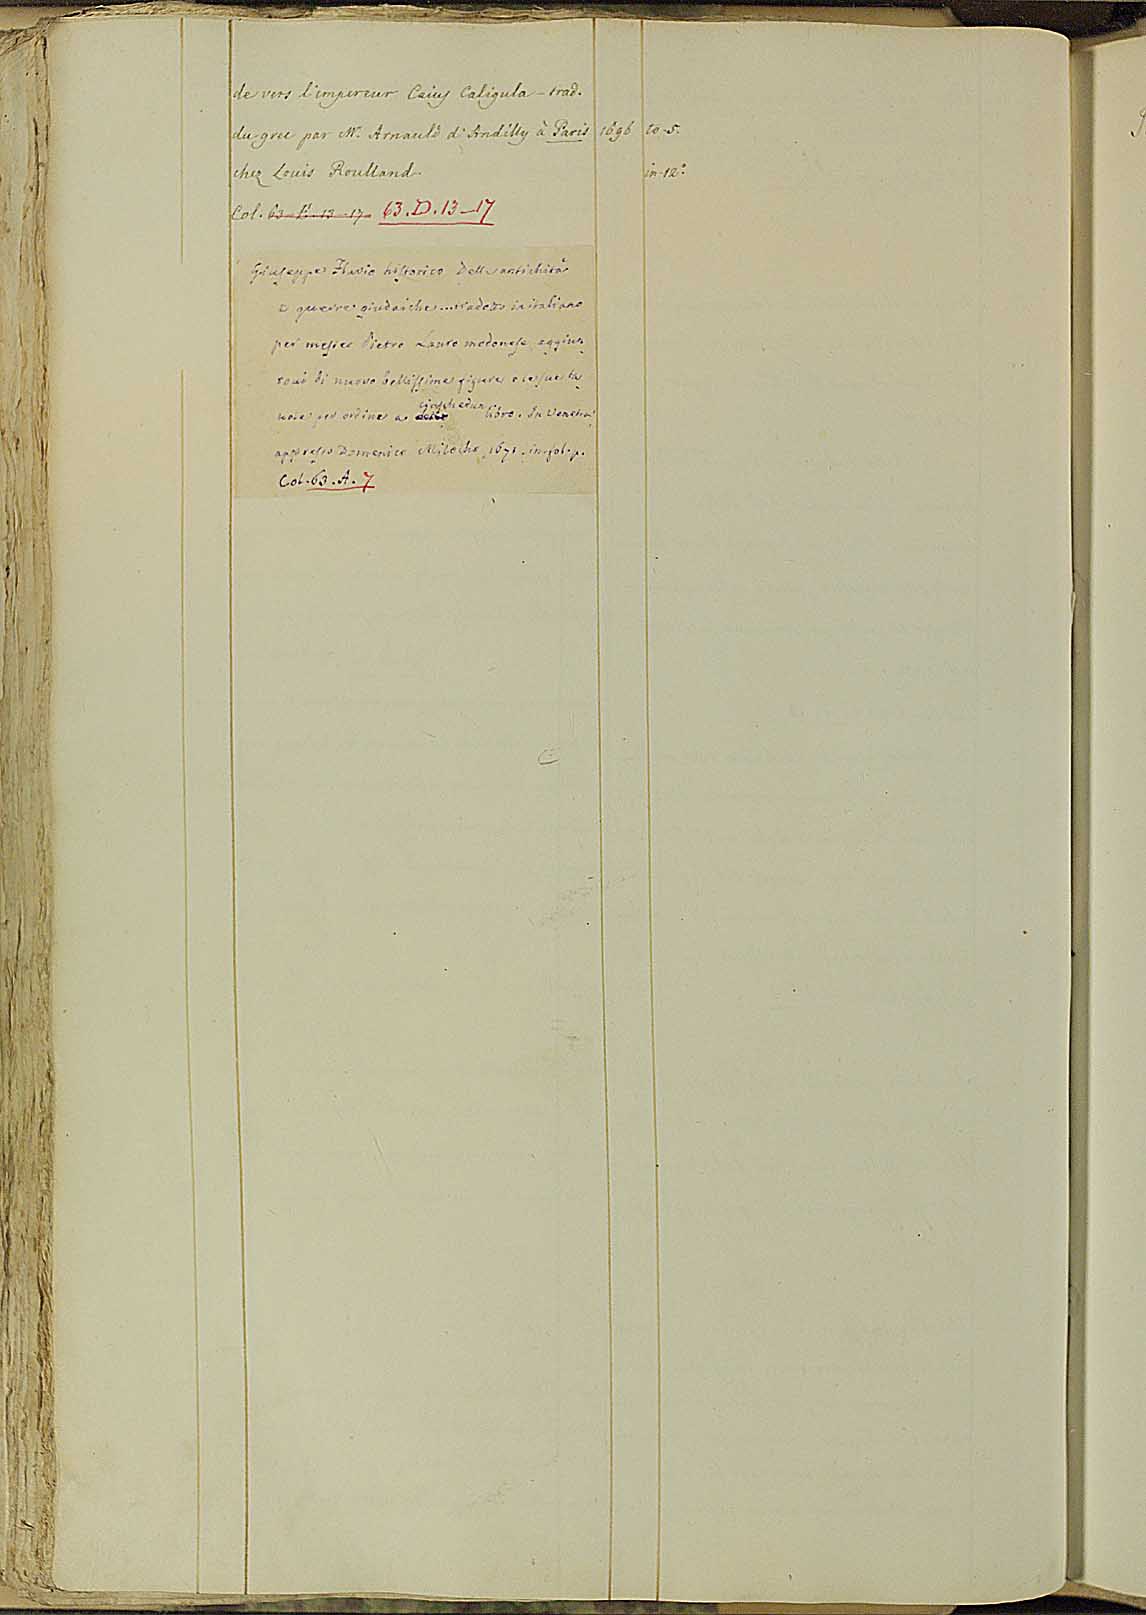 de vers l'impereur Caius Caligula - trad.
du grec par Mr. Arnauld d'Andilly à Paris 1696 to-5.
chez Louis Roulland. in-12°
Col. 63-E-13-17- 63.D.13-17
Giuseppe Flavio historico Delle antichità
e guerre giudaiche... tradotto in italiano
per messer Pietro Lauro modonese, aggiun
toui di nuovo bellissime figure e le sue ta
uole per ordine a ciaschedun libro. In Venetia
appresso Domenico Milocho, 1671. in-fol. p.
Col. 63.A.7